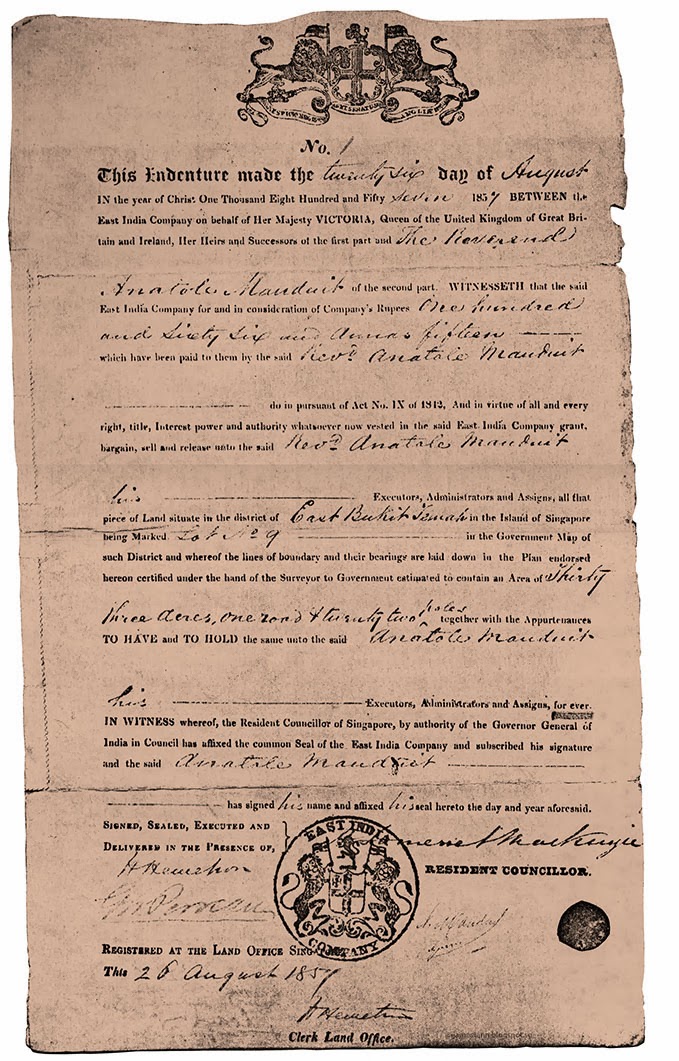 No. 1
This Indenture made the twenty six day of August
IN the year of Christ One Thousand Eight Hundred and Fifty seven 1857 BETWEEN the
East India Company on behalf of Her Majesty VICTORIA, Queen of the United Kingdom of Great Bri-
tain and Ireland, Her Heirs and Successors of the first part and The Reverend
Anatole Mauduit of the second part. WITNESSETH that the said
East India Company for and in consideration of Company's Rupees One hundred
and Sixty Six and Annas fifteen
which have been paid to them by the said Revd. Anatole Mauduit
do in pursuant of Act No. IX of 1842, And in virtue of all and every
right, title, Interest power and authority whatsoever now vested in the said East India Company grant,
bargain, sell and release unto the said Revd. Anatole Mauduit
his Executors, Administrators and Assigns, all that
piece of Land situate in the district of East Bukit Temah in the Island of Singapore
being Marked Lot No 9 in the Government Map of
such District and whereof the lines of boundary and their bearings are laid down in the Plan endorsed
hereon certified under the hand of the Surveyor to Government estimated to contain an Area of Thirty
three acres, one rood & twenty two poles together with the Appurtenances
TO HAVE and TO HOLD the same unto the said Anatole Mauduit
his Executors, Administrators and Assigns, for ever.
IN WITNESS whereof, the Resident Councillor of Singapore, by authority of the Governor General of
India in Council has affixed the common Seal of the East India Company and subscribed his signature
and the said Anatole Mauduit
has signed his name and affixed his seal hereto the day and year aforesaid.
SIGNED, SEALED, EXECUTED AND
DELIVERED IN THE PRESENCE OF,
EAST INDIA COMPANY
RESIDENT COUNCILLOR.
REGISTERED AT THE LAND OFFICE
This 26 August 1857
Clerk Land Office.